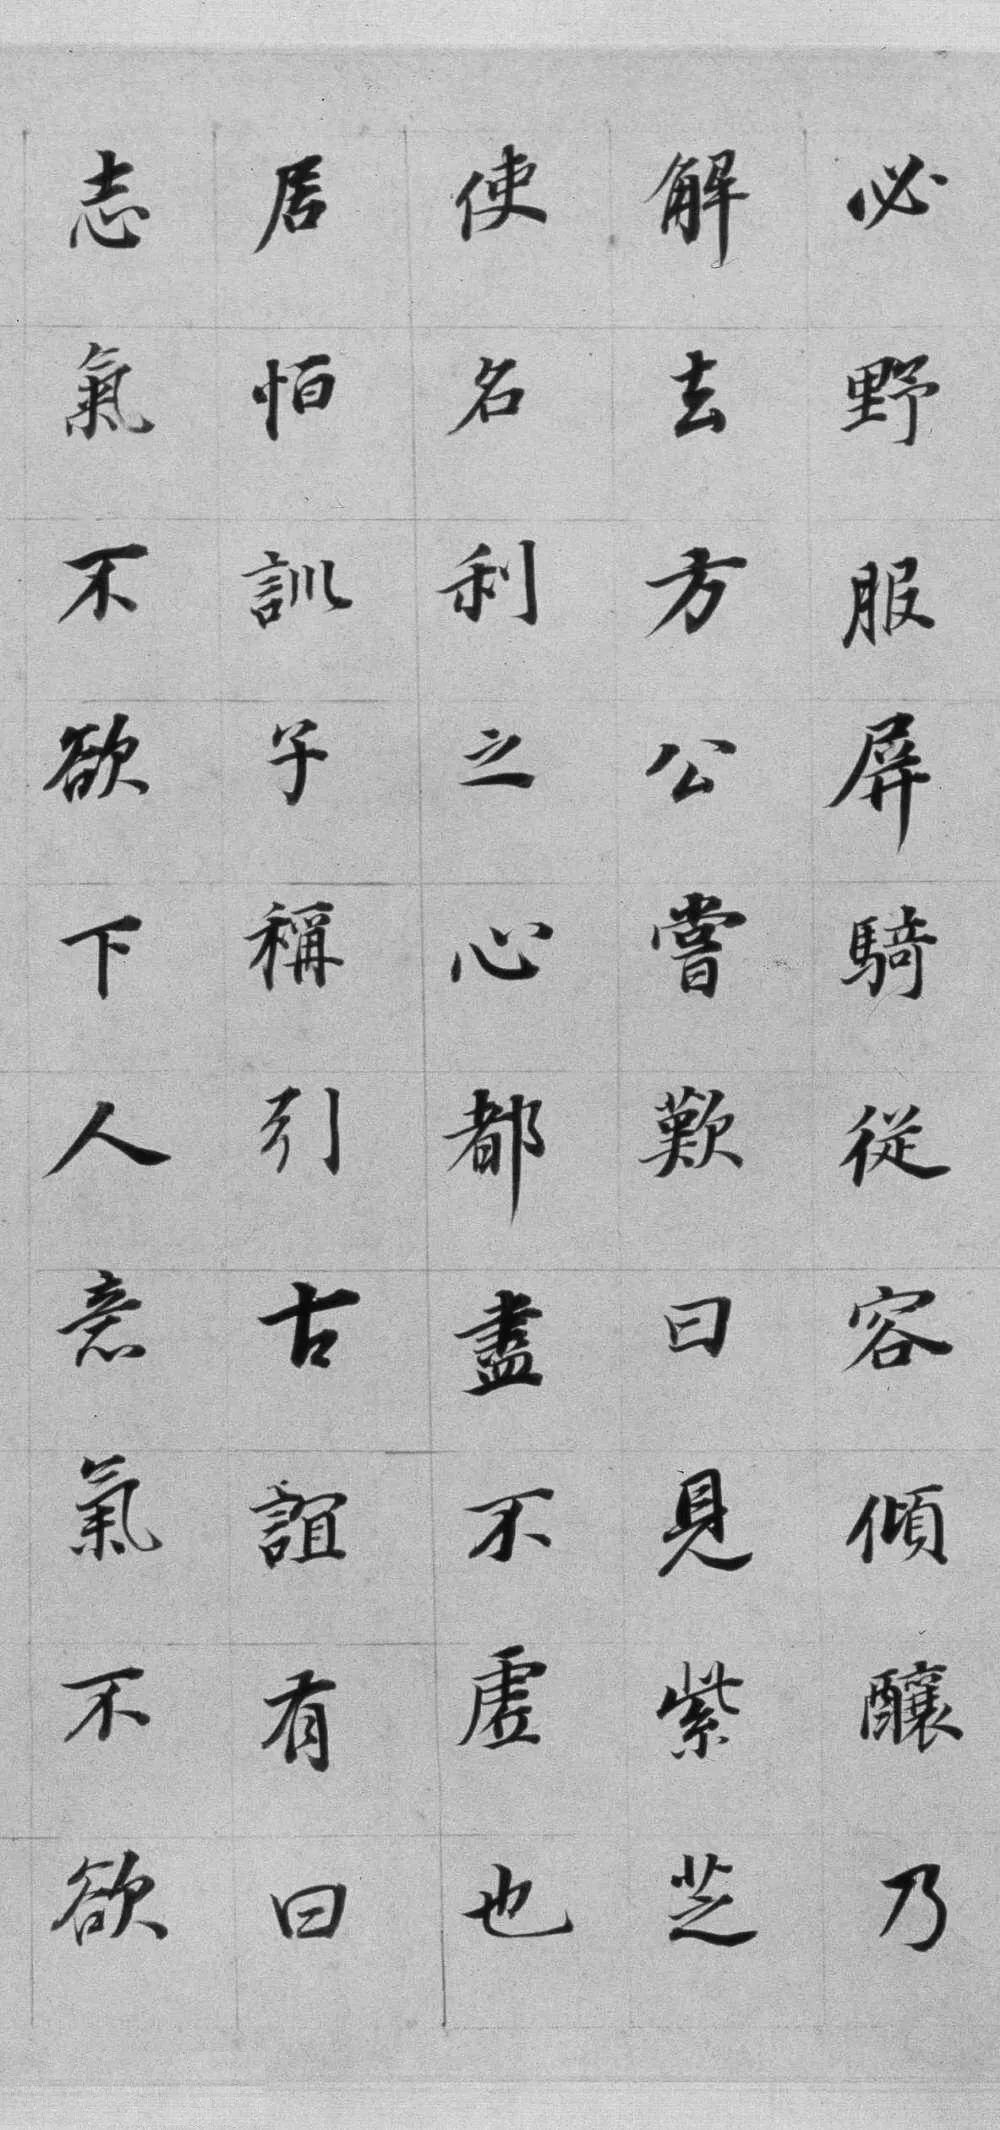 必野服屏騎從容傾釀乃
解去方公嘗歎曰見紫芝
使名利之心都盡不虛也
居恒訓子稱引古誼有曰
志氣不欲下人意氣不欲